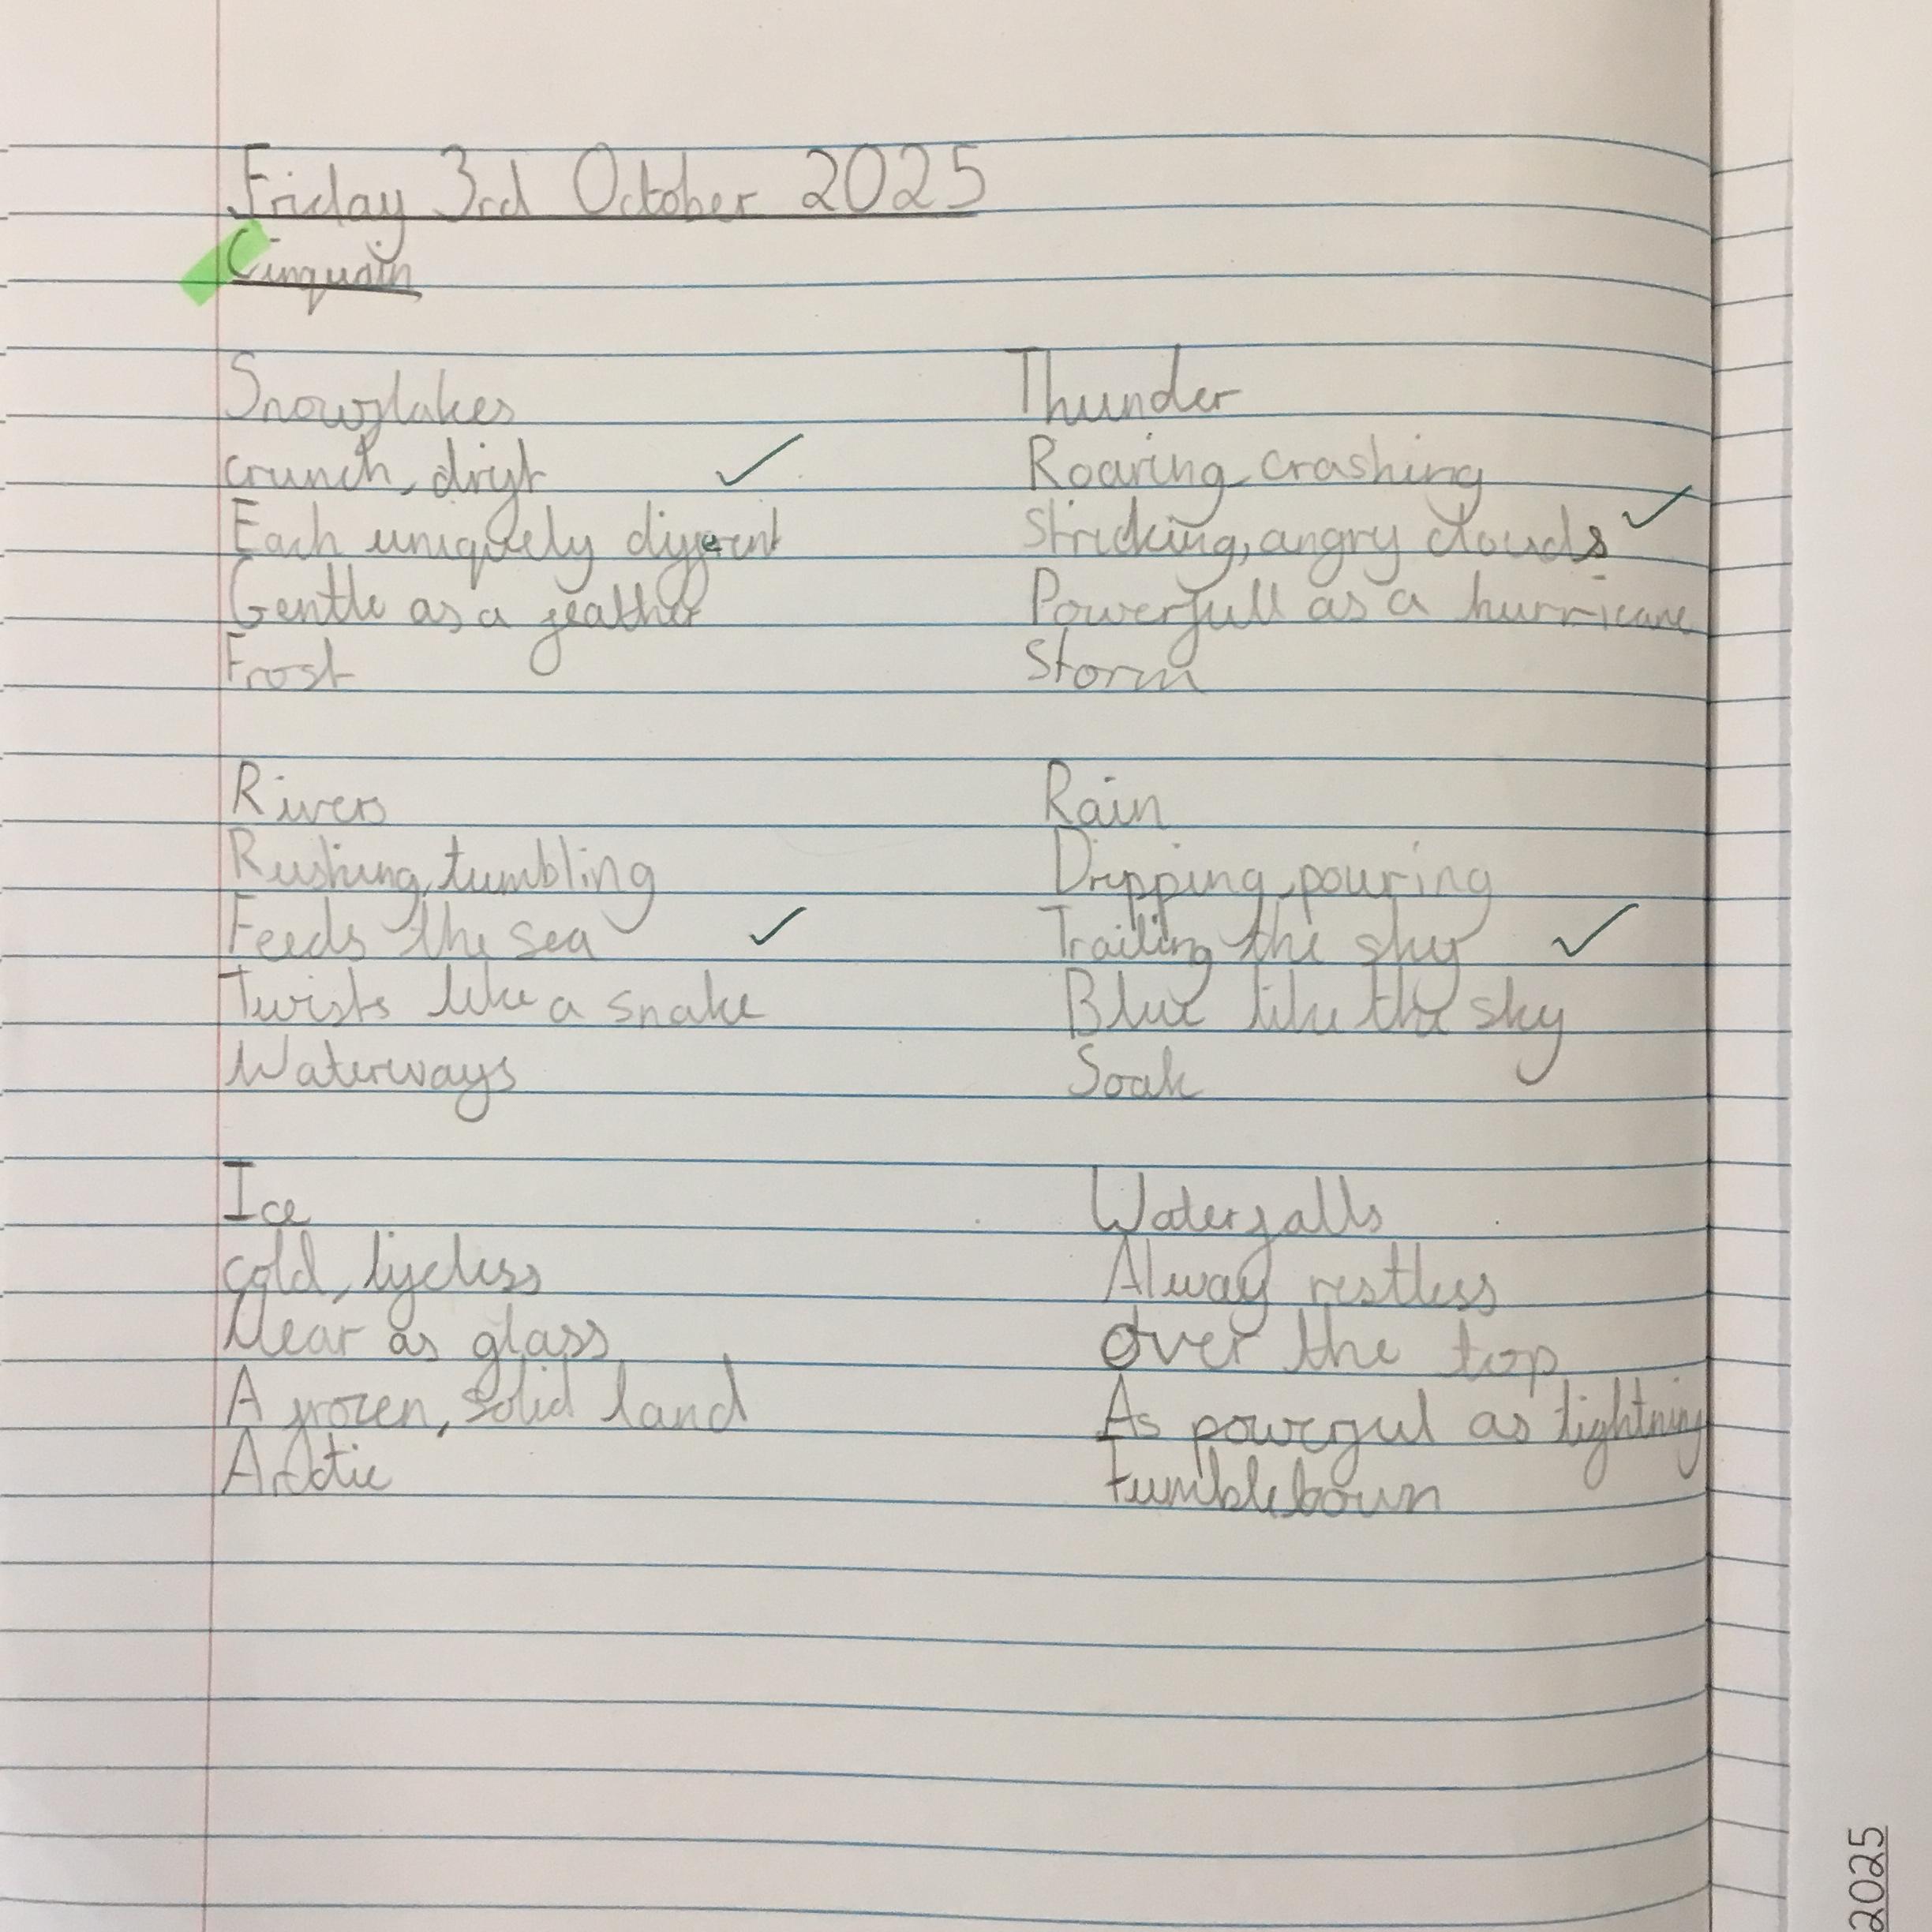 Friday 3rd October 2025
Cinquain
Snowflakes
crunch, drift
Each uniquely different
Gentle as a feather
Frost
Thunder
Roaring, crashing
Stricking, angry clouds
Powerfull as a hurricane
Storm
Rivers
Rushing, tumbling
Feeds the sea
Twists like a snake
Waterways
Rain
Dripping, pouring
Trailing the sky
Blue like the sky
Soak
Ice
cold, lifeless
Clear as glass
A frozen, solid land
Arctic
Waterfalls
Alway restless
Over the top
As powerful as lightning
Tumble
2025